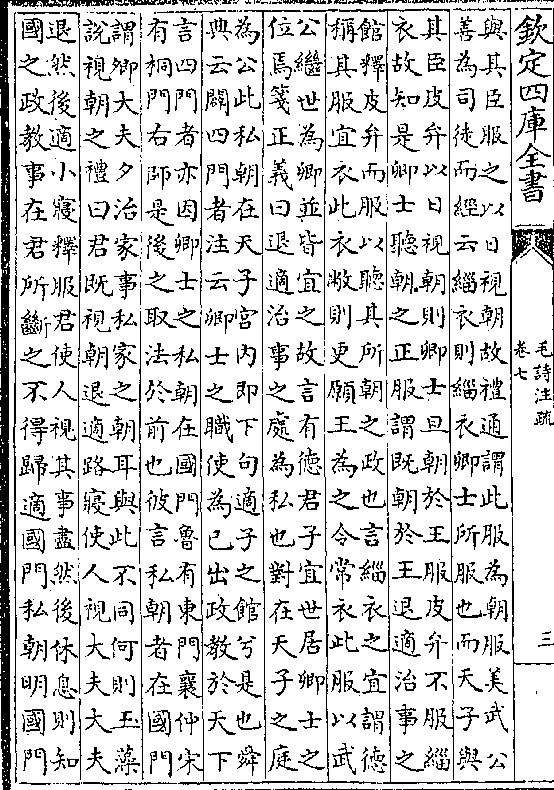 欽定四庫全書
毛詩注疏
卷七
三
與其臣服之以日視朝故禮通謂此服為朝服美武公
善為司徒而經云緇衣則緇衣卿士所服也而天子與
其臣皮弁以日視朝則卿士旦朝於王服皮弁不服緇
衣故知是卿士聽朝之正服謂既朝於王退適治事之
館釋皮弁而服以聽其所朝之政也言緇衣之宜謂德
稱其服宜衣此衣敝則更願王為之令常衣此服以武
公繼世為卿並皆宜之故言有德君子宜世居卿士之
位焉箋正義曰退適治事之處為私也對在天子之庭
為公此私朝在天子宮內即下句適子之館兮是也舜
典云闢四門者注云卿士之職使為已出政教於天下
言四門者亦因卿士之私朝在國門魯有東門襄仲宋
有桐門右師是後之取法於前也彼言私朝者在國門
謂卿大夫夕治家事私家之朝耳與此不同何則玉藻
說視朝之禮曰君既視朝退適路寢使人視大夫大夫
退然後適小寢釋服君使人視其事盡然後休息則知
國之政教事在君所斷之不得歸適國門私朝明國門